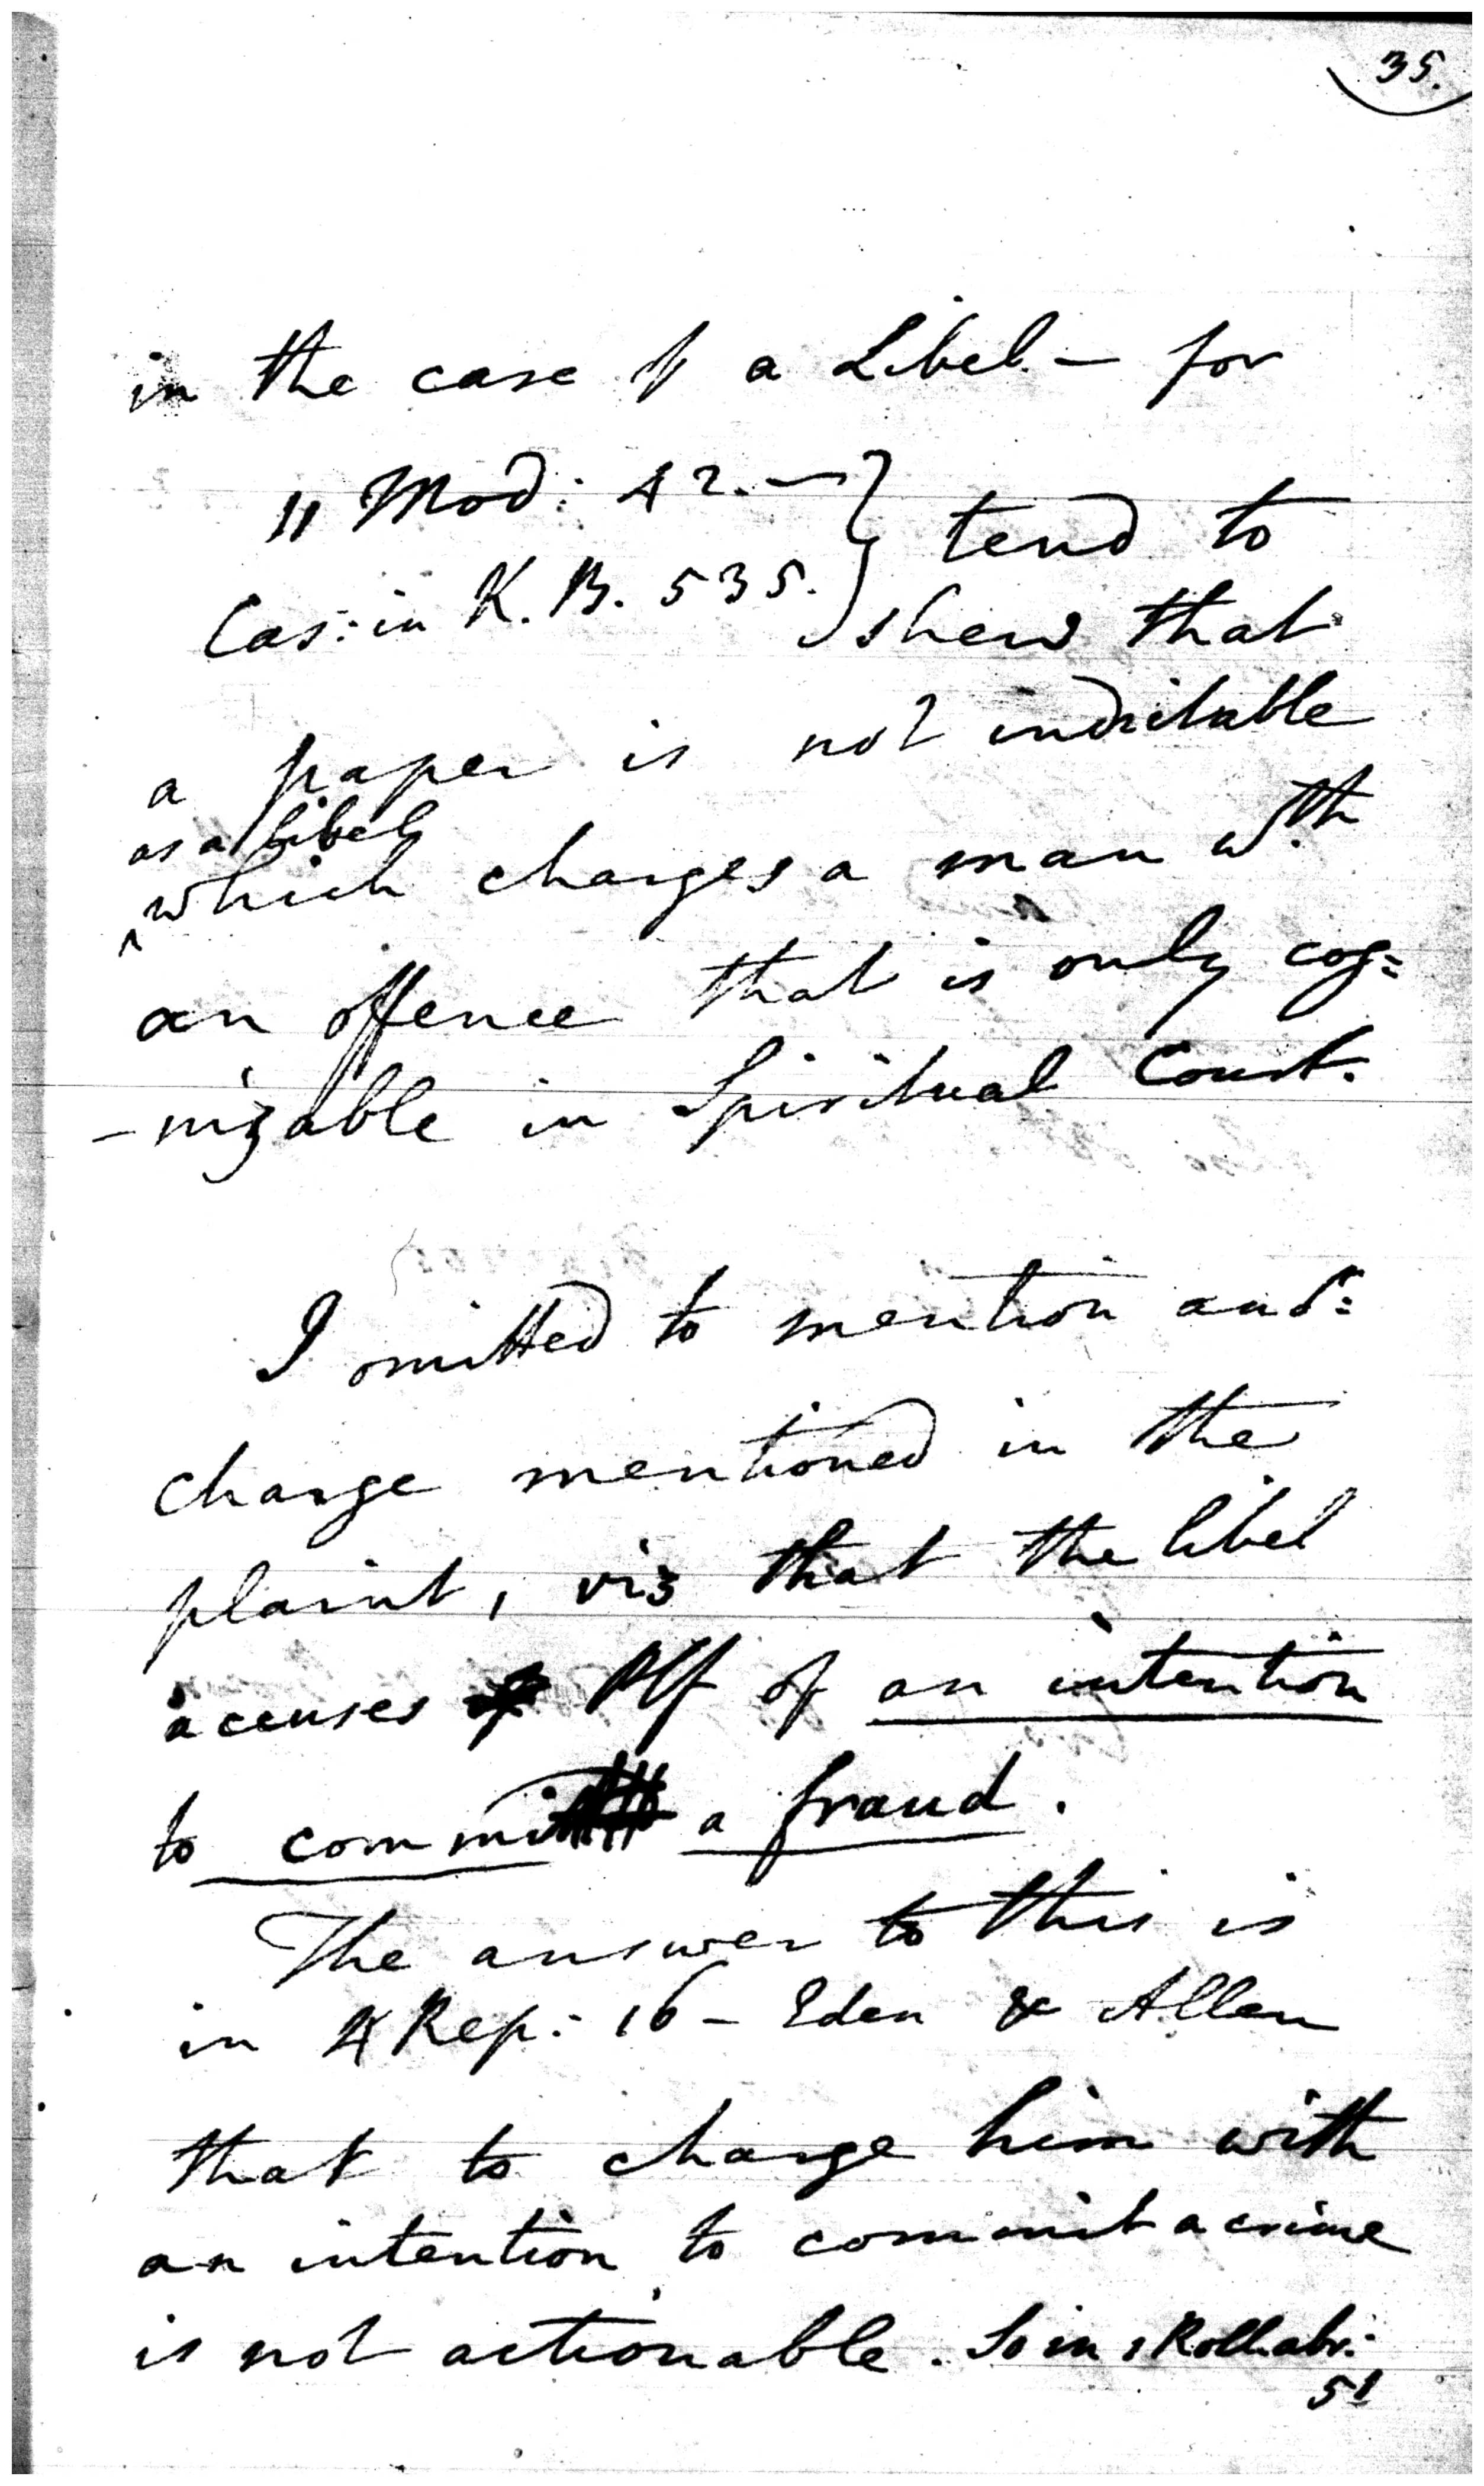 35.
in the case of a Libel - for
11 Mod: 42. -
Cas: in K. B. 535.
tend to
shew that
a paper is not indictable
as a libel
which charges a man wth
an offence that is only cog=
-nizable in Spiritual Court.
I omitted to mention anor:
charge mentioned in the
plaint, viz that the libel
accuses Plf of an intention
to commit a fraud.
The answer to this is
in 4 Rep: 16 - Eden & Allen
that to charge him with
an intention to commit a crime
is not actionable. So in 1 Roll. abr:
51